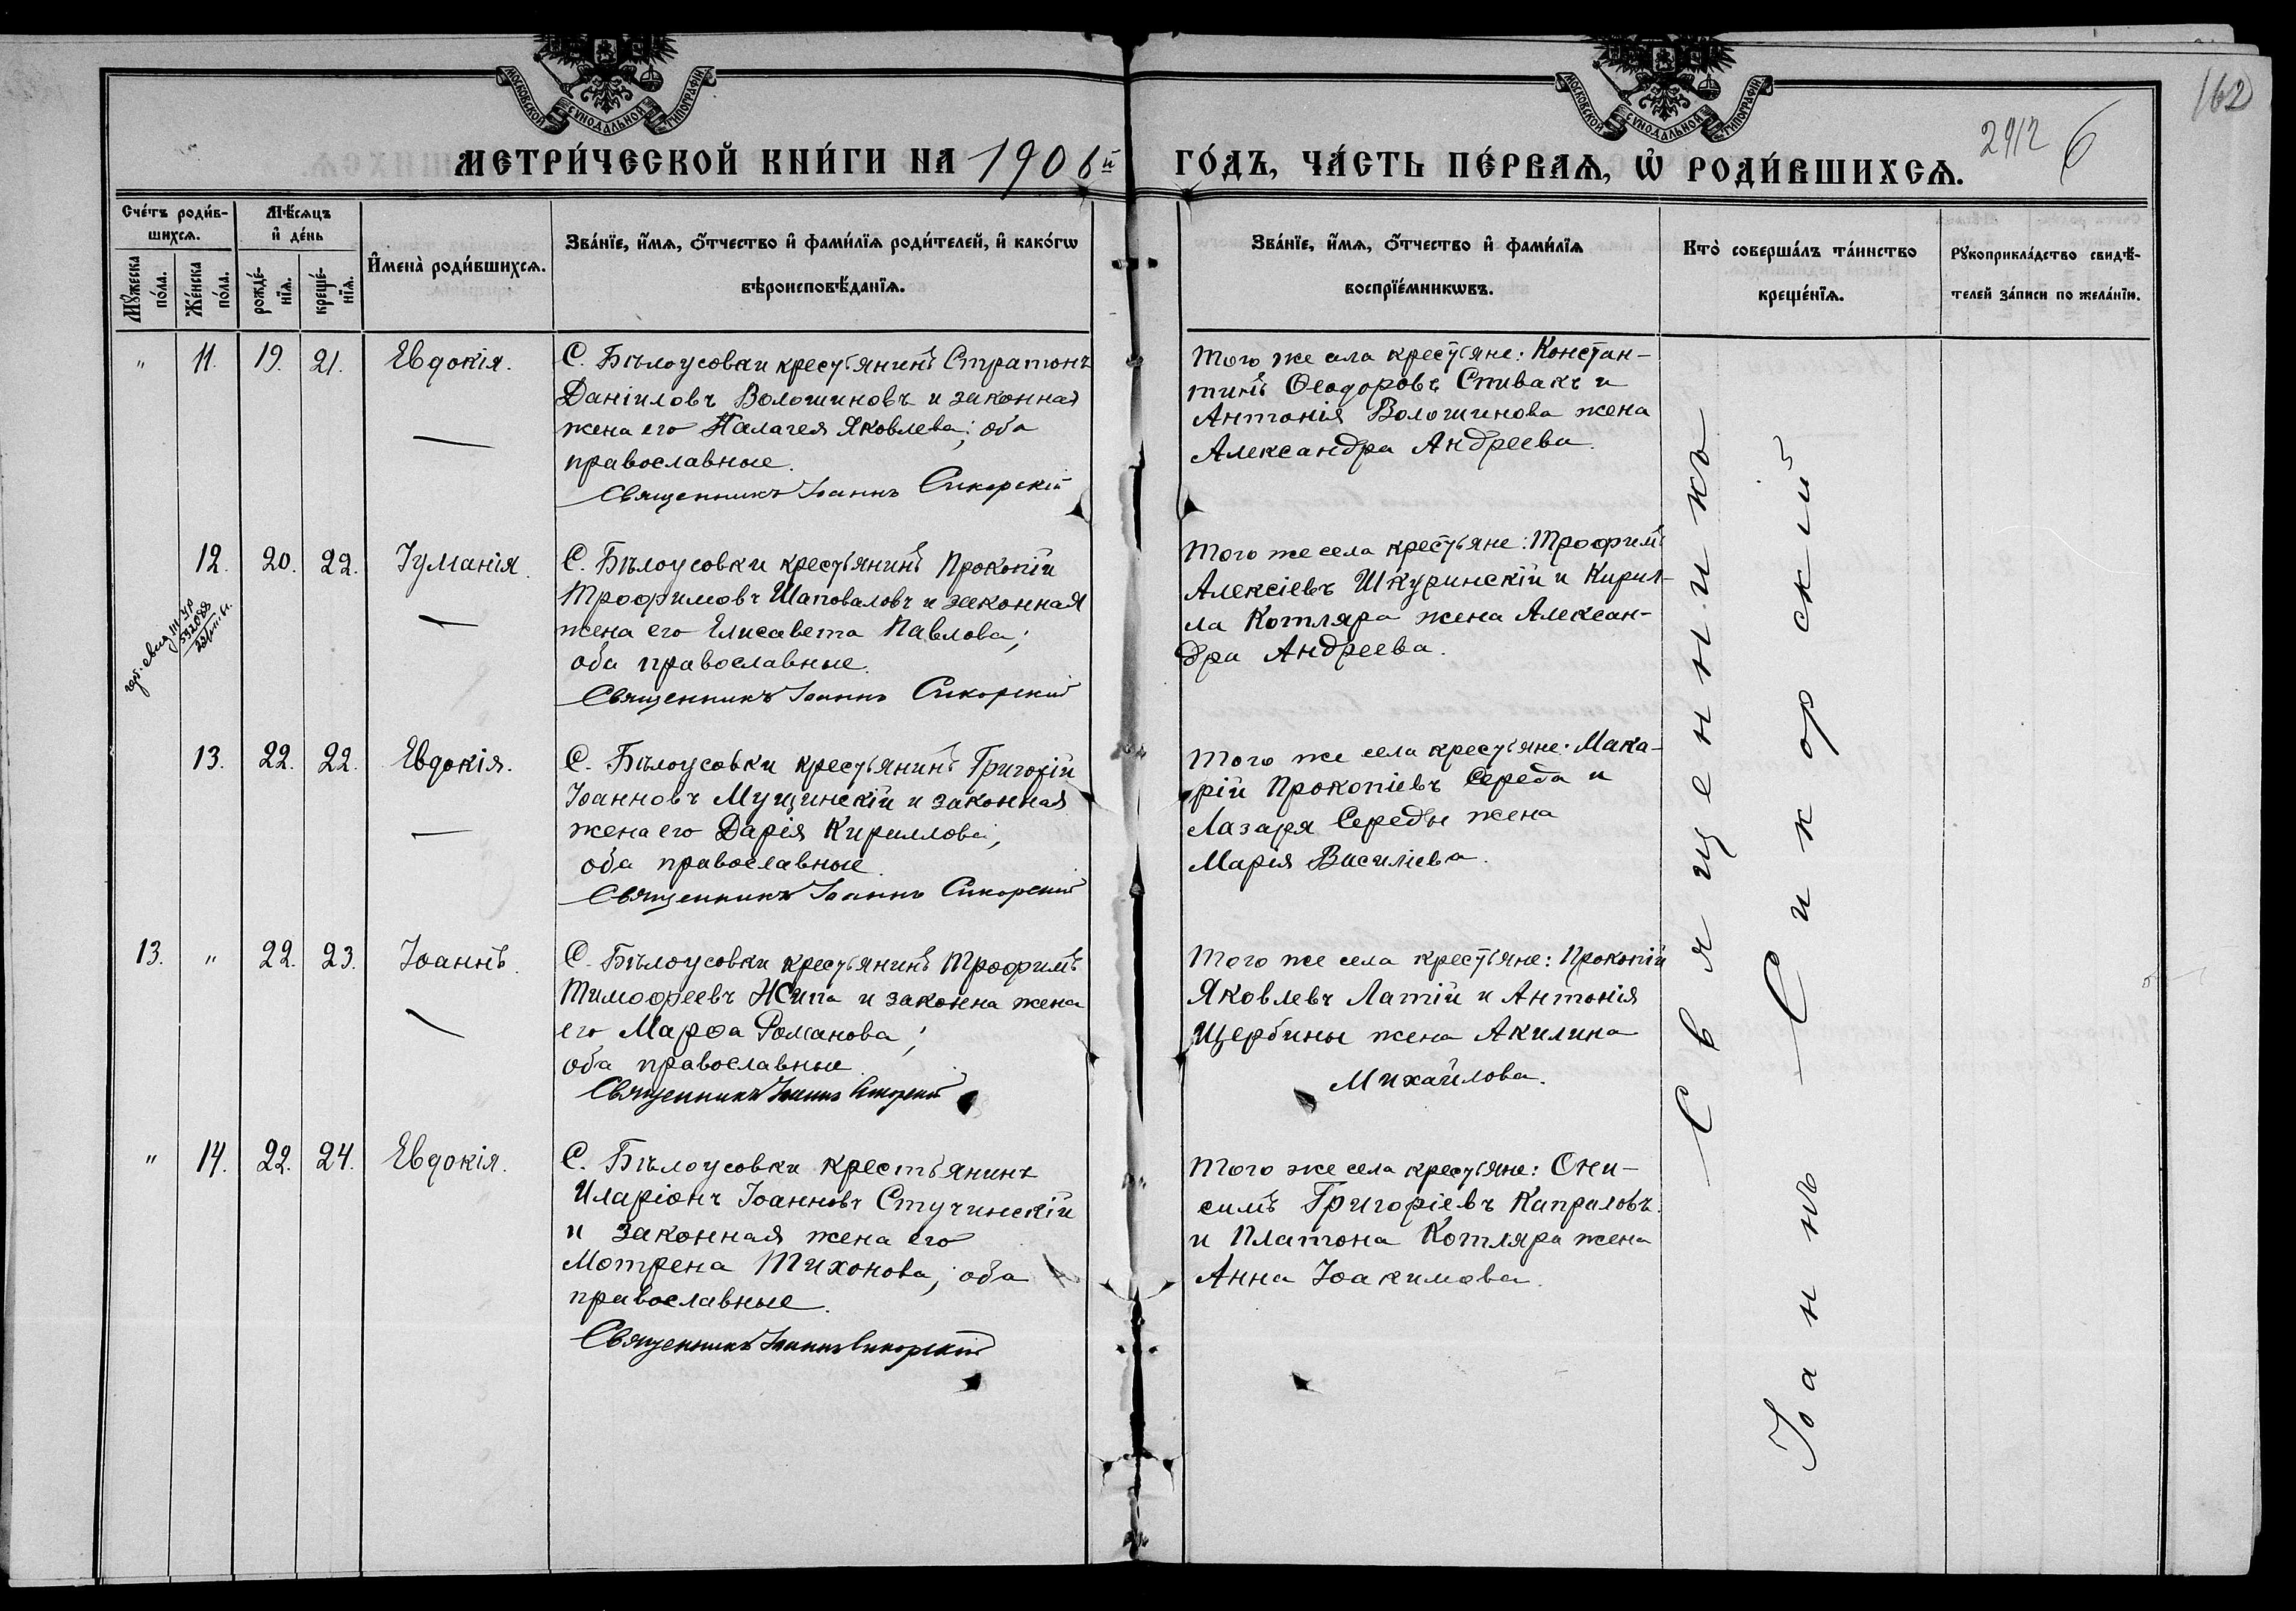 МОСКОВСКОЙ СѴНОДАЛЬНОЙ ТИПОГРАФІИ
МОСКОВСКОЙ СѴНОДАЛЬНОЙ ТИПОГРАФІИ
162
2912 6
МЕТРИ́ЧЕСКОЙ КНИ́ГИ НА 1906й ГО́ДЪ, ЧА́СТЬ ПЕ́РВАѦ, Ѡ҆ РОДИ́ВШИХСѦ.
Сче́тъ роди́в-
шихсѧ.
Мѣ́сѧцъ
и҆ де́нь
Мꙋ́жеска
по́ла.
Же́нска
по́ла.
рожде́-
нїѧ.
креще́-
нїѧ.
И҆мена̀ роди́вшихсѧ.
Зва́нїе, и҆́мѧ, ѻ҆́тчество и҆ фами́лїѧ роди́телей, и҆ како́гѡ
вѣроисповѣ́данїѧ.
Зва́нїе, и҆́мѧ, ѻ҆́тчество и҆ фами́лїѧ
воспрїе́мникѡвъ.
Кто̀ соверша́лъ та́инство
креще́нїѧ.
Рꙋкоприкла́дство свидѣ́-
телей за́писи по жела́нїю.
" 11. 19. 21. Евдокія.
С. Бѣлоусовки крестьянинъ Стратонъ
Даніиловъ Волошиновъ и законная
жена его Палагея Яковлева; оба
православные.
Священникъ Іоаннъ Сикорскій
Того же села крестьяне: Констан-
тинъ Ѳеодоровъ Спивакъ и
Антонія Волошинова жена
Александра Андреева.
12. 20. 22. Іуманія.
С. Бѣлоусовки крестьянинъ Прокопій
Трофимовъ Шаповаловъ и законная
жена его Елисавета Павлова;
оба православные.
Священникъ Іоаннъ Сикорскій
Того же села крестьяне: Трофимъ
Алексіевъ Шкуринскій и Кирил-
ла Котляра жена Алексан-
дра Андреева.
13. 22. 22. Евдокія.
С. Бѣлоусовки крестьянинъ Григорій
Іоанновъ Мущинскій и законная
жена его Дарія Кириллова,
оба православные.
Священникъ Іоаннъ Сикорскій
Того же села крестьяне: Мака-
рій Прокопіевъ Середа и
Лазаря Середы жена
Марія Василіева.
13. " 22. 23. Іоаннъ.
С. Бѣлоусовки крестьянинъ Трофимъ
Тимофеевъ и законна жена
его Марѳа Романова;
оба православные.
Священникъ Іоаннъ Сикорскій
Того же села крестьяне: Прокопій
Яковлевъ Латій и Антонія
Щербины жена Акилина
Михайлова.
" 14. 22. 24. Евдокія.
С. Бѣлоусовки крестьянинъ
Иларіонъ Іоанновъ Стучинскій
и законная жена его
Мотрена Тихонова; оба
православные.
Священникъ Іоаннъ Сикорскій
Того же села крестьяне: Они-
симъ Григоріевъ Капраловъ
и Платона Котляра жена
Анна Іоакимова.
Священникъ
Іоаннъ Сикорскій